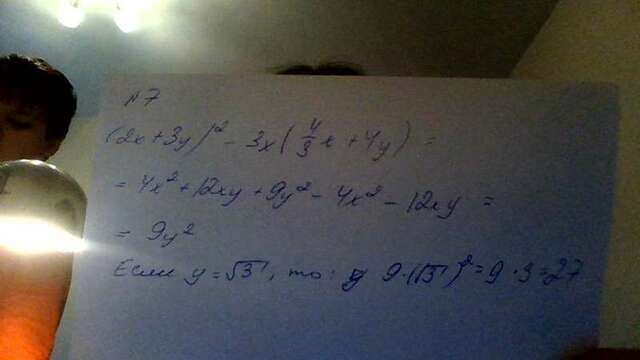 №7
(2x+3y)² - 3x(4/3 x + 4y) =
= 4x² + 12xy + 9y² - 4x² - 12xy =
= 9y²
Если y = √3, то: 9·(√3)² = 9·3 = 27